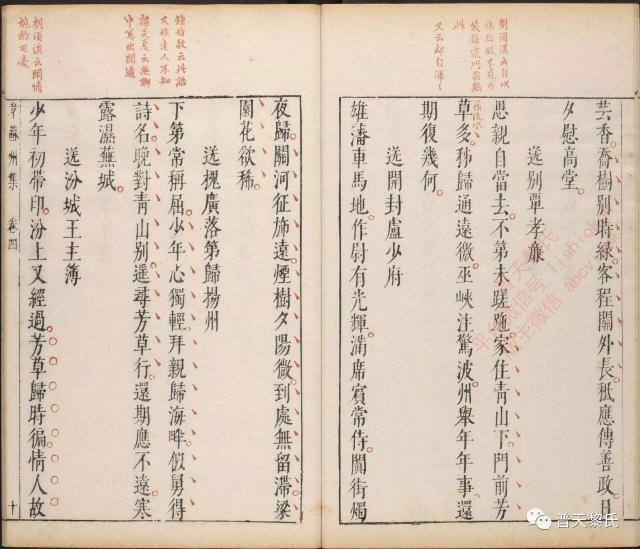 劉須溪云自以
又云却自渾
芸香喬樹別時綠客程關外長秖應傳善政日
夕慰高堂
送別覃孝廉
思親自當去不第未蹉跎家住青山下門前芳
草多秭歸通遠徼巫峽注驚波州舉年年事還
期復幾何
送開封盧少府
雄藩車馬地作尉有光輝滿席賓常侍闐街燭
鍾伯敬云此語
又非老人不知
譚友夏云無聊
中寫出閒適
劉須溪云閒情
婉約可愛
夜歸關河征旆遠煙樹夕陽微到處無留滯梁
園花欲稀
送槐廣落第歸揚州
下第常稱屈少年心獨輕拜親歸海畔似舅得
詩名晚對青山別遙尋芳草行還期應不遠寒
露濕蕪城
送汾城王主簿
少年初帶印汾上又經過芳草歸時徧情人故
韋蘇州集 卷四 十
普天黎氏